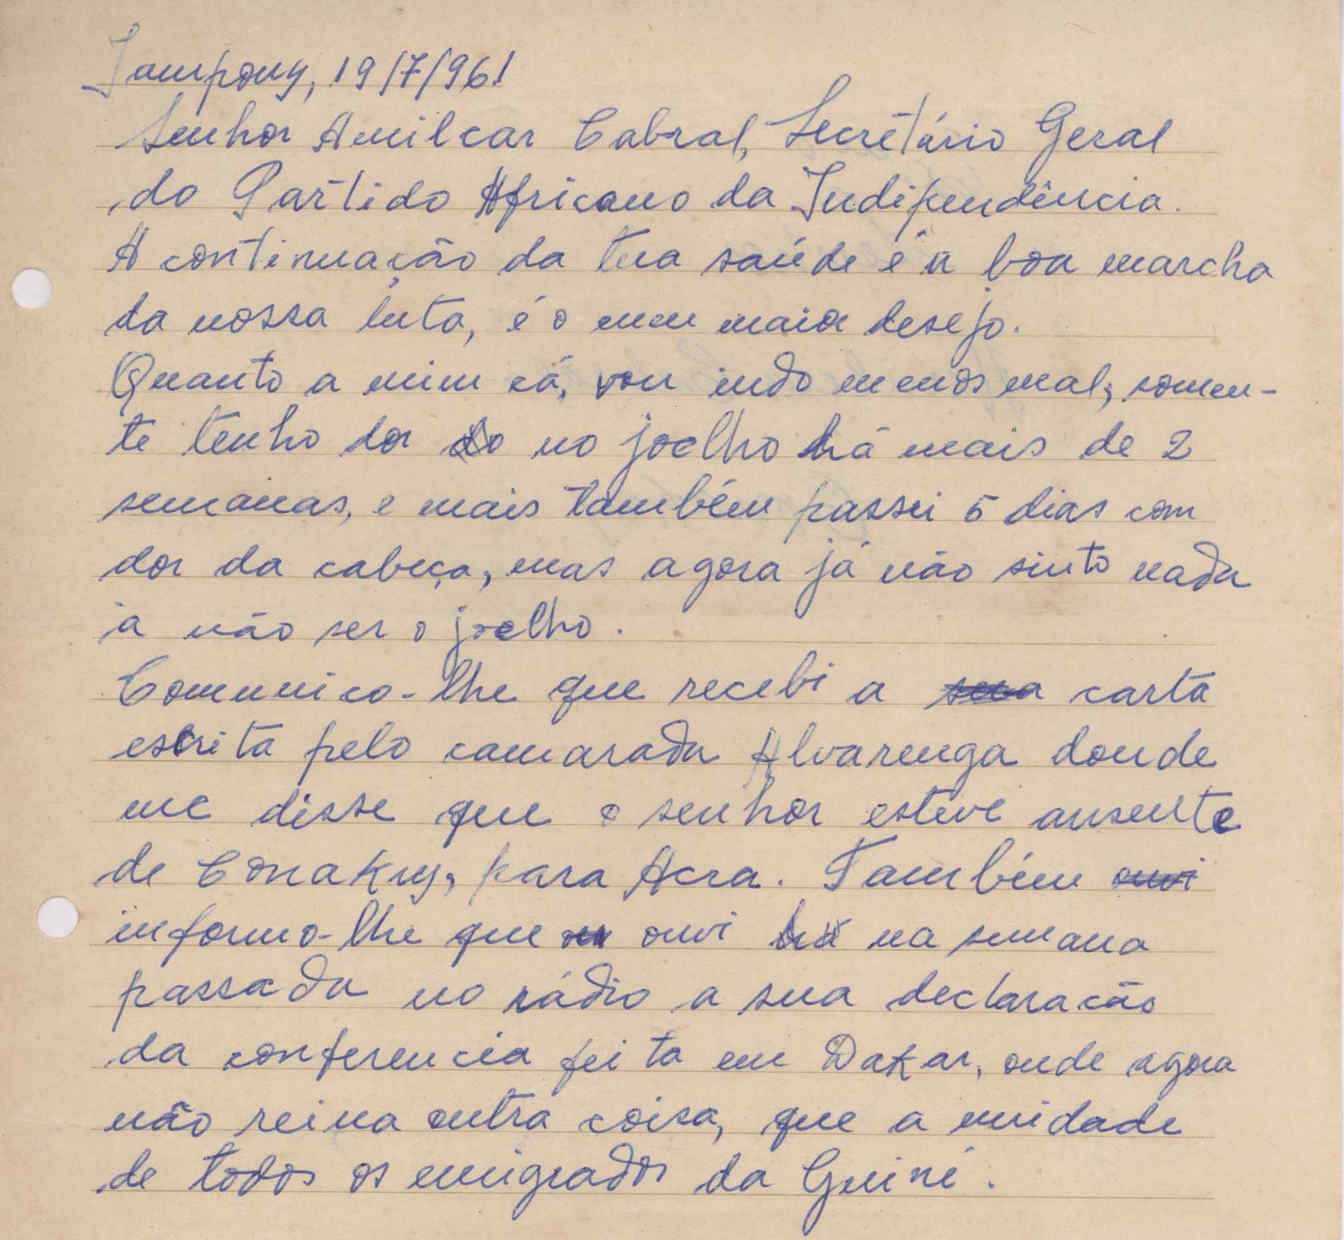 Jampony, 19/7/961
Senhor Amilcar Cabral, Secretário Geral
do Partido Africano da Indipendência.
A continuação da tua saúde é a boa marcha
da nossa luta, é o meu maior desejo.
Quanto a mim cá, vou indo menos mal, somen-
te tenho dor do no joelho há mais de 2
semanas, e mais também passei 5 dias com
dor da cabeça, mas agora já não sinto nada
à não ser o joelho.
Comunico-lhe que recebi a sua carta
escrita pelo camarada Alvarenga donde
me disse que o senhor esteve ausente
de Conakry, para Acra. Também ouvi
informo-lhe que ouvi há na semana
passada no rádio a sua declaração
da conferencia feita em Dakar, onde agora
não reina outra coisa, que a unidade
de todos os emigrados da Guiné.